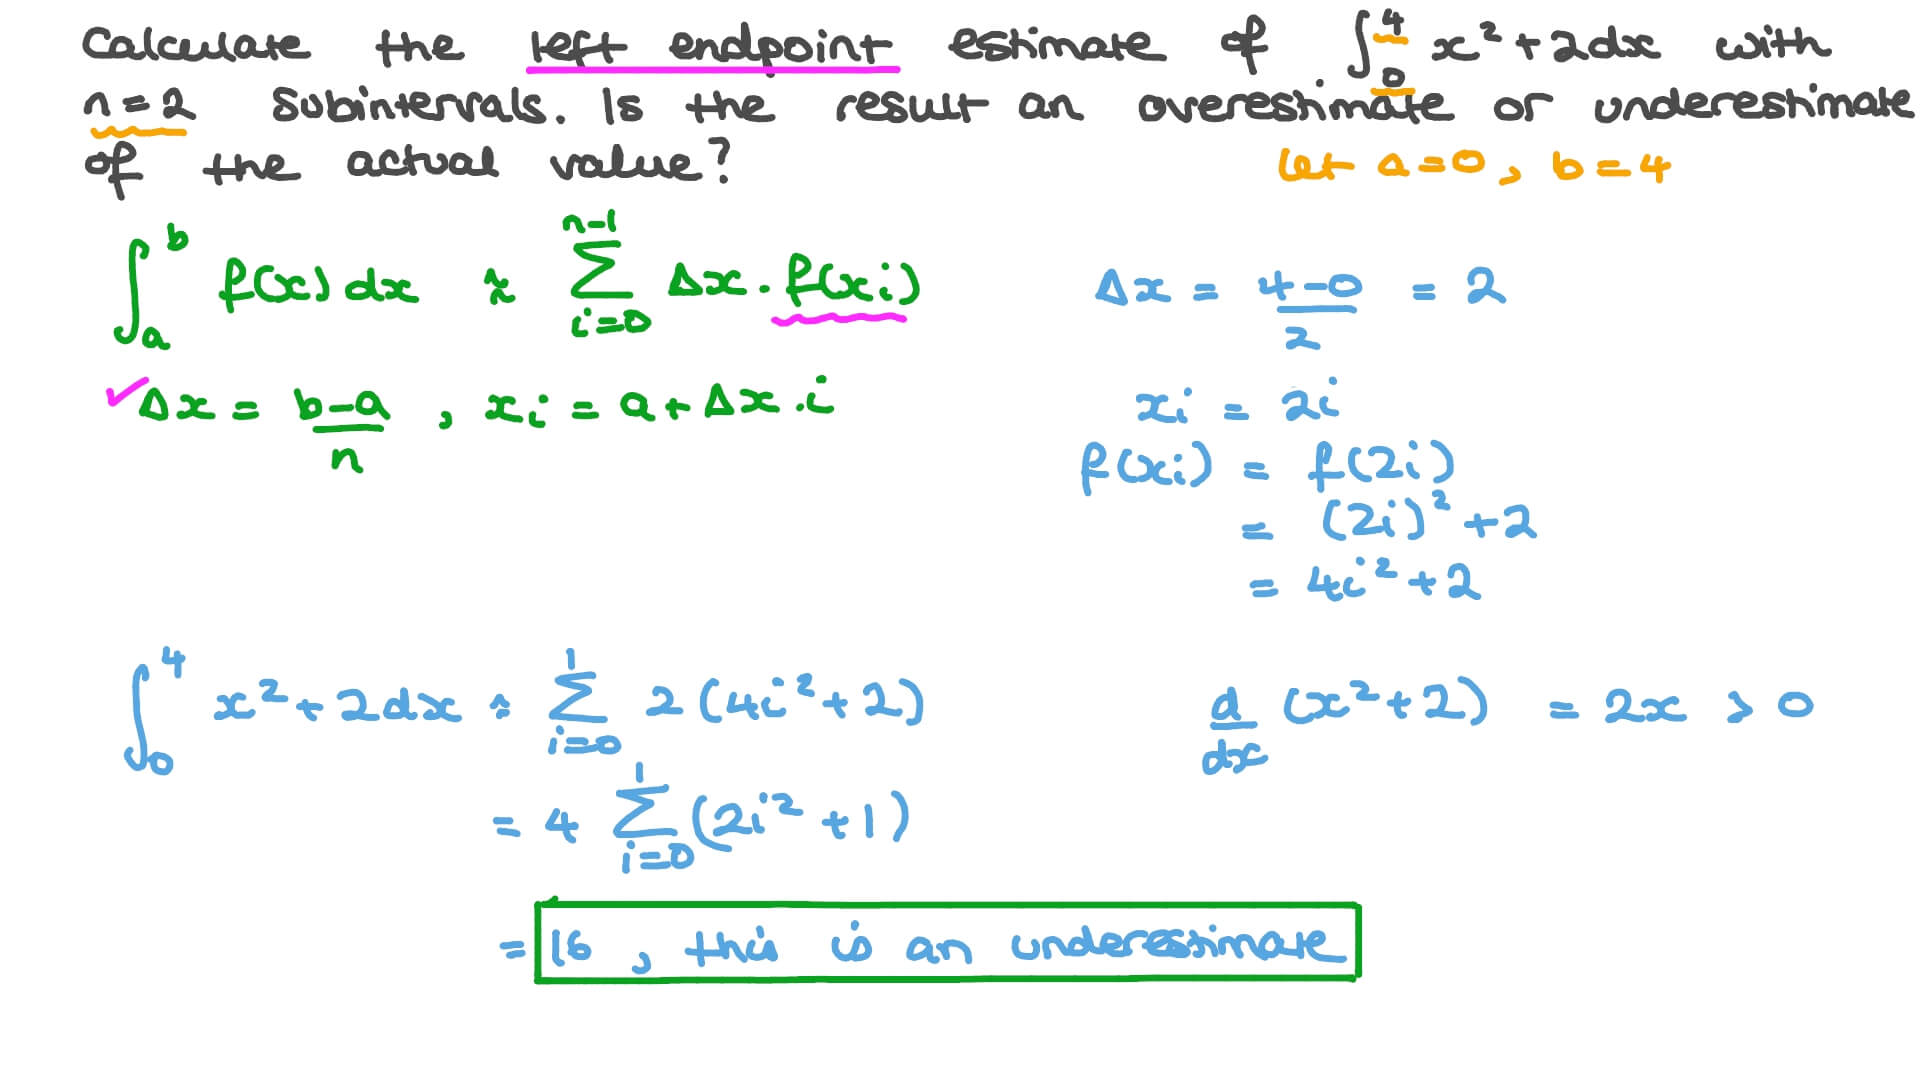 Calculate the left endpoint estimate of ∫₀⁴ x² + 2dx with
n = 2 subintervals. Is the result an overestimate or underestimate
of the actual value?
let a = 0, b = 4
∫ₐᵇ f(x) dx ≈ Σ_{i=0}^{n-1} Δx · f(xᵢ)
Δx = (4-0)/2 = 2
✓ Δx = (b-a)/n , xᵢ = a + Δx · i
xᵢ = 2i
f(xᵢ) = f(2i)
= (2i)² + 2
= 4i² + 2
∫₀⁴ x² + 2dx ≈ Σ_{i=0}^{1} 2(4i² + 2)
d/dx (x² + 2) = 2x > 0
= 4 Σ_{i=0}^{1} (2i² + 1)
= 16, this is an underestimate